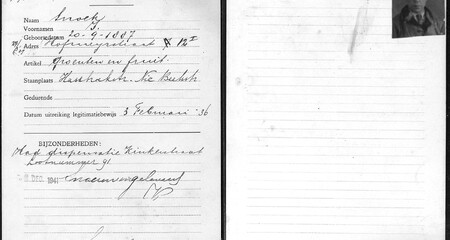 Naam Snoek
Voornamen J.
Geboortedatum 20-9-1887
Adres Hofmeyrstraat 12 I
Artikel Groenten en fruit.
Standplaats Hasebroekstr. Nic Beetsstr.
Gedurende
Datum uitreiking legitimatiebewijs 3 Februari '36
BIJZONDERHEDEN:
Had dispensatie Kinkerstraat
Lootnummer 91
DEC. 1941